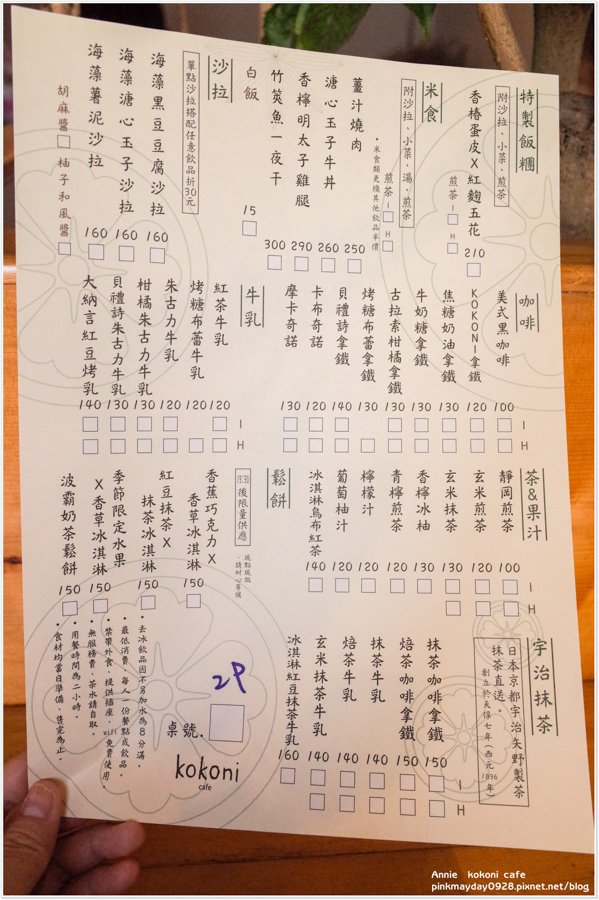 特製飯糰
附沙拉、小菜、煎茶
香椿蛋皮X紅麴五花 210
煎茶 I H
米食
附沙拉、小菜、湯、煎茶
煎茶 I H
薑汁燒肉 250
溏心玉子牛丼 260
香檸明太子雞腿 290
竹筴魚一夜干 300
白飯 15
沙拉
單點沙拉搭配任意飲品折30元
海藻黑豆豆腐沙拉 160
海藻溏心玉子沙拉 160
海藻薯泥沙拉 160
胡麻醬 柚子和風醬
咖啡
美式黑咖啡 100
KOKONI拿鐵 120
焦糖奶油拿鐵 130
牛奶糖拿鐵 130
古拉索柑橘拿鐵 130
烤糖布蕾拿鐵 130
貝禮詩拿鐵 140
卡布奇諾 120
摩卡奇諾 130
I
H
牛乳
紅茶牛乳 120
烤糖布蕾牛乳 120
朱古力牛乳 120
柑橘朱古力牛乳 130
貝禮詩朱古力牛乳 130
大納言紅豆烤乳 140
I
H
茶&果汁
靜岡煎茶 100
玄米煎茶 120
玄米抹茶 130
香檸冰柚 130
青檸煎茶 130
檸檬汁 120
葡萄柚汁 120
冰淇淋烏布紅茶 140
I
H
鬆餅
13:30後限量供應
現點現做，請耐心等候
香蕉巧克力X香草冰淇淋 150
紅豆抹茶X抹茶冰淇淋 150
季節限定水果X香草冰淇淋 150
波霸奶茶鬆餅 150
宇治抹茶
日本京都宇治矢野製茶
抹茶直送。
創立於天保七年(西元1836年)
抹茶咖啡拿鐵 150
焙茶咖啡拿鐵 150
抹茶牛乳 140
焙茶牛乳 140
玄米抹茶牛乳 140
冰淇淋紅豆抹茶牛乳 160
I
H
2P
桌號.
kokoni
cafe
・去冰飲品因不另加水為8分滿。
・最低消費，每人一份餐點或飲品。
・禁帶外食，提供插座，wifi免費使用。
・無服務費，茶水請自取。
・用餐時間為二小時。
・食材均當日準備，售完為止。
Annie kokoni cafe
pinkmayday0928.pixnet.net/blog